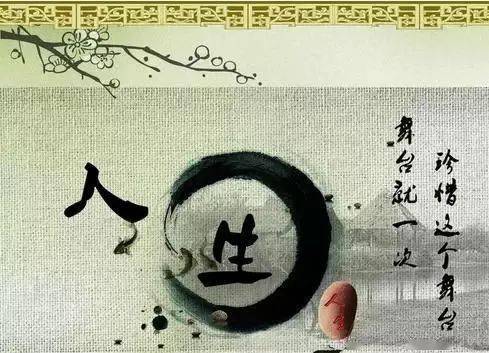 人生
舞台就一次
珍惜这个舞台
人生